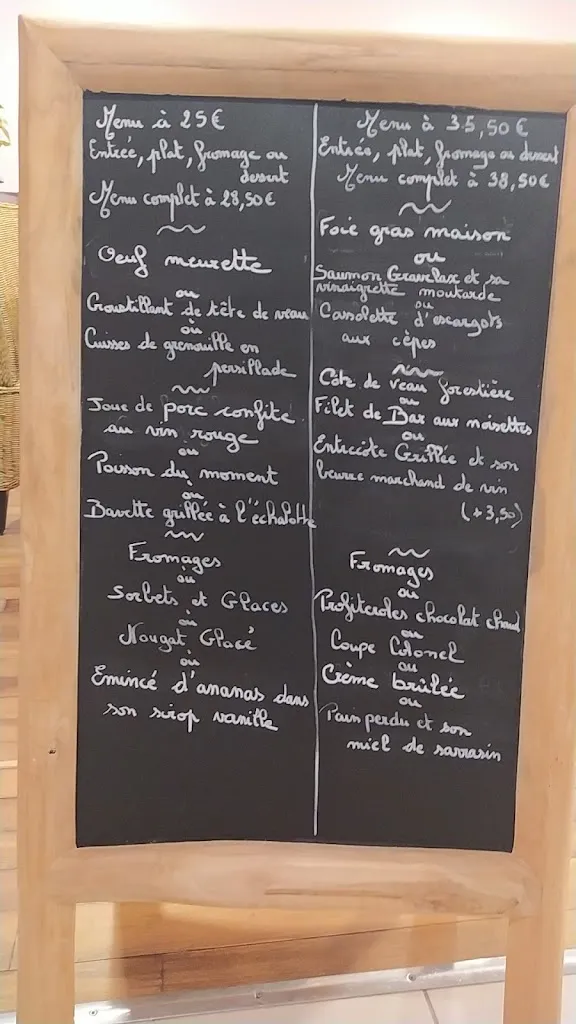 Menu à 25€
Entrée, plat, fromage ou
dessert
Menu complet à 28,50€
Oeuf meurette
ou
Croustillant de tête de veau
ou
Cuisses de grenouille en
persillade
Joue de porc confite
au vin rouge
ou
Poisson du moment
ou
Bavette grillée à l'échalotte
Fromages
ou
Sorbets et Glaces
ou
Nougat Glacé
ou
Emincé d'ananas dans
son sirop vanille
Menu à 35,50€
Entrée, plat, fromage ou dessert
Menu complet à 38,50€
Foie gras maison
ou
Saumon Gravelax et sa
vinaigrette moutarde
ou
Cassolette d'escargots
aux cèpes
Côte de veau forestière
ou
Filet de Bar aux noisettes
ou
Entrecôte Grillée et son
beurre marchand de vin
(+3,50)
Fromages
ou
Profiteroles chocolat chaud
ou
Coupe Colonel
ou
Crème brûlée
ou
Pain perdu et son
miel de sarrasin